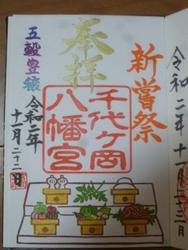 令和二年十一月二十三日
新嘗祭
奉拝
千代ヶ岡
八幡宮
五穀豊穣
令和二年
十一月二十三日